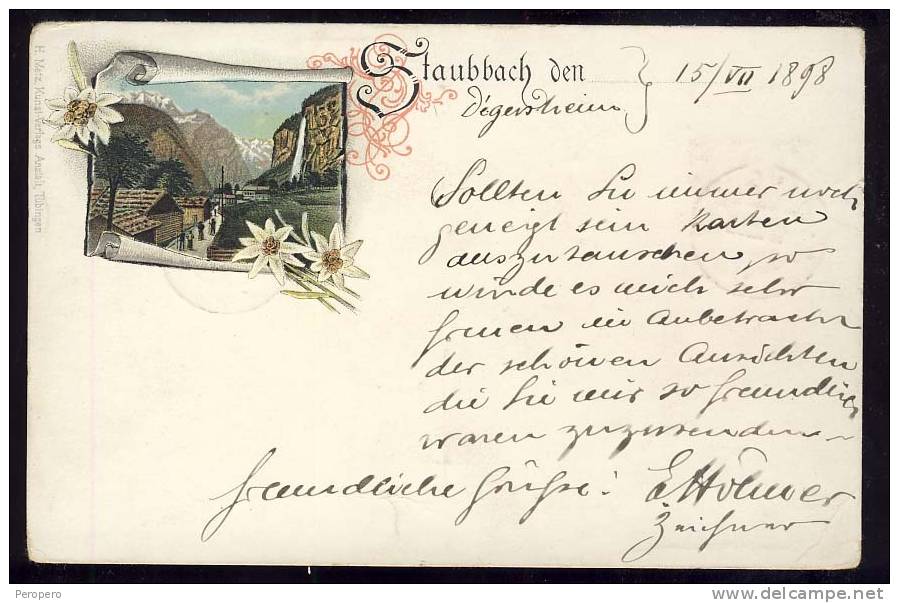 Staubbach den 15/VII 1898
Degersheim
Sollten Sie immer noch
geneigt sein Karten
auszutauschen, so
würde es mich sehr
freuen in Anbetracht
der schönen Ansichten
die Sie mir so freundlich
waren zuzusenden
freundliche Grüsse!
Zeichner
H. Metz, Kunst-Verlags-Anstalt, Tübingen
Peropero
www.delcampe.net